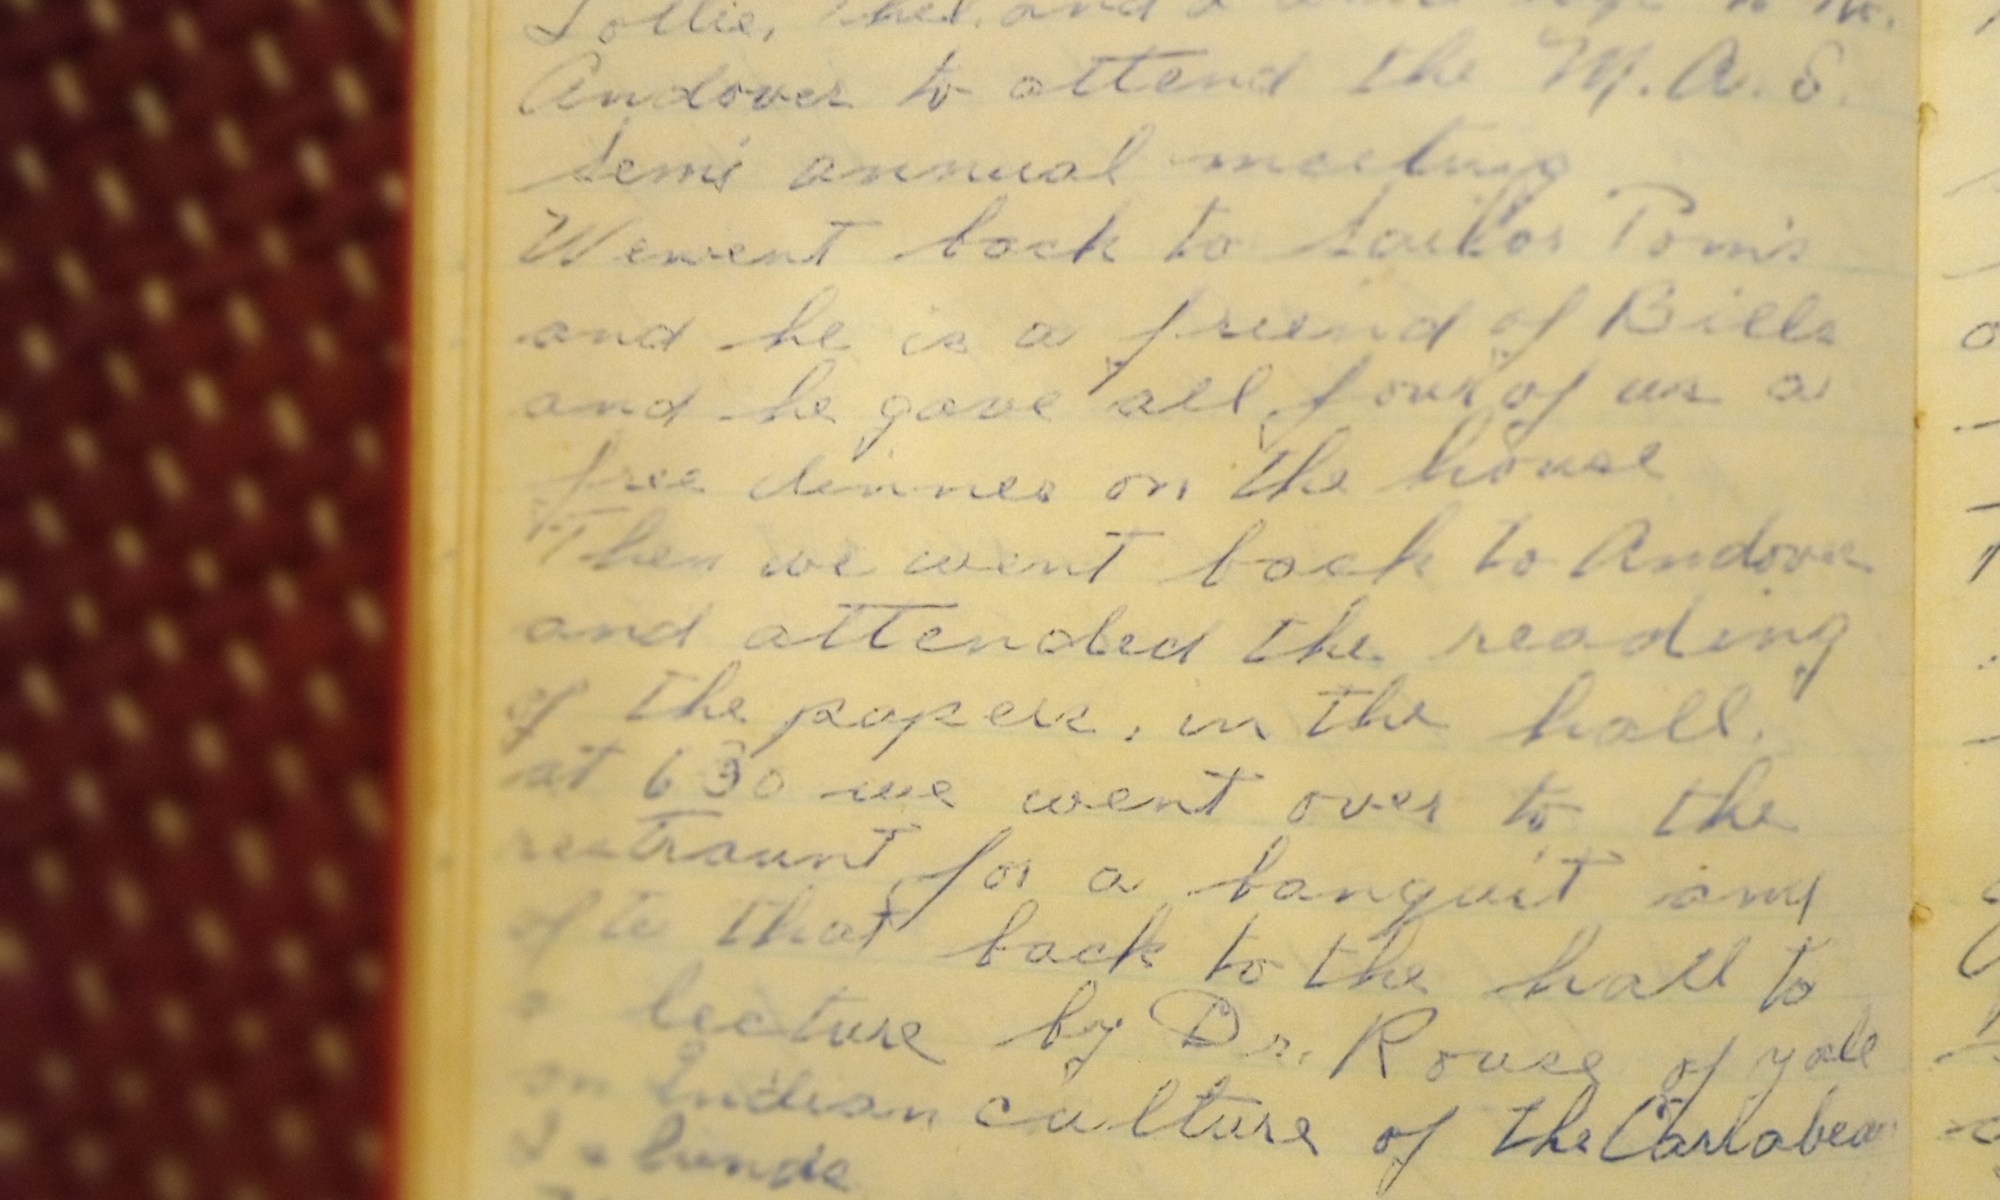 Lollie, Chet, and I
Andover to attend the M. A. S.
semi annual meeting
We went back to Sailor Tom's
and he is a friend of Bills
and he gave all four of us a
free dinner on the house
Then we went back to Andover
and attended the reading
of the papers, in the hall.
at 6 30 we went over to the
restraunt for a banquit and
after that back to the hall to
a lecture by Dr. Rouse of yale
on Indian culture of the Carlabean
Islands